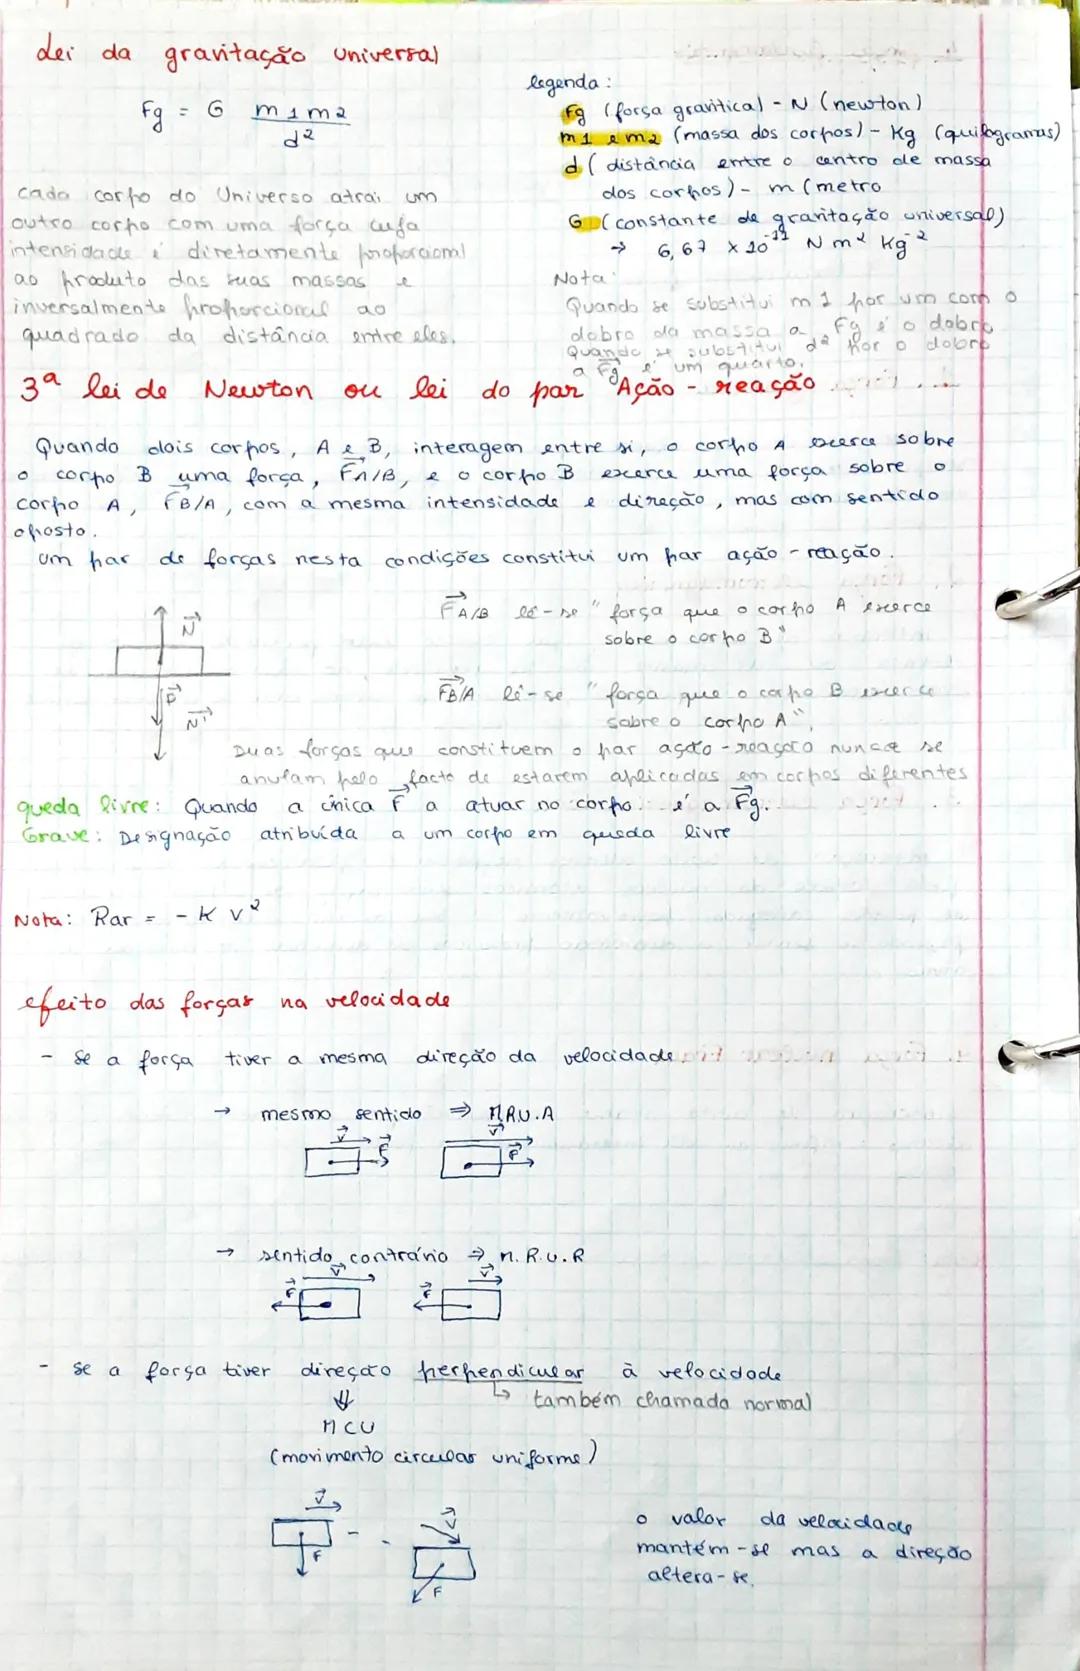 Lei da gravitação universal
Fg = G m1 m2
d²
legenda:
Fg (força gravítica) - N (newton)
m1 e m2 (massa dos corpos) - Kg (quilogramas)
d (distância entre o centro de massa
dos corpos) - m (metro
G (constante de gravitação universal)
→ 6,67 × 10⁻¹¹ N m² Kg⁻²
cada corpo do Universo atrai um
outro corpo com uma força cuja
intensidade é diretamente proporcional
ao produto das suas massas e
inversalmente proporcional ao
quadrado da distância entre eles.
Nota:
Quando se substitui m1 por um com o
dobro da massa a Fg é o dobro
Quando se substitui d² por o dobro
a Fg é um quarto.
3ª lei de Newton ou lei do par Ação - reação
Quando dois corpos, A e B, interagem entre si, o corpo A exerce sobre
o corpo B uma força, F⃗A/B, e o corpo B exerce uma força sobre o
corpo A, F⃗B/A, com a mesma intensidade e direção, mas com sentido
oposto.
um par de forças nesta condições constitui um par ação - reação.
F⃗A/B lê-se "força que o corpo A exerce
sobre o corpo B"
N⃗
P⃗
N⃗'
F⃗B/A lê-se "força que o corpo B exerce
sobre o corpo A",
Duas forças que constituem o par ação-reação nunca se
anulam pelo facto de estarem aplicadas em corpos diferentes
queda livre: Quando a única F⃗ a atuar no corpo é a F⃗g.
Grave: Designação atribuída a um corpo em queda livre
Nota: Rar = - K v²
efeito das forças na velocidade
- se a força tiver a mesma direção da velocidade
→ mesmo sentido ⇒ M.R.U.A
v⃗ F⃗ v⃗ F⃗
→ sentido contrário ⇒ M.R.U.R
F⃗ v⃗ F⃗ v⃗
- se a força tiver direção perpendicular à velocidade
↳ também chamada normal
⇓
MCU
(movimento circular uniforme)
v⃗ F v⃗ F
o valor da velocidade
mantém-se mas a direção
altera-se.